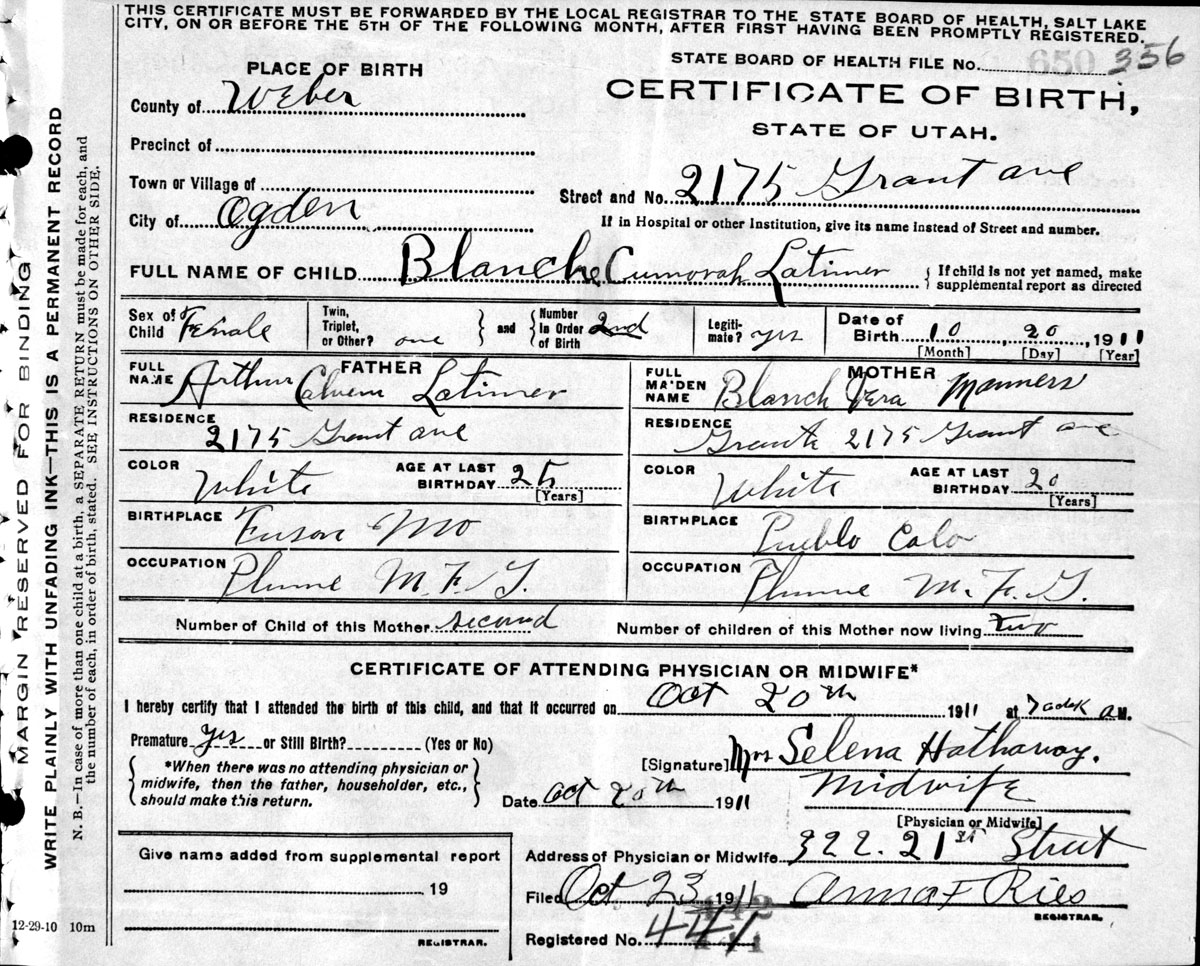 THIS CERTIFICATE MUST BE FORWARDED BY THE LOCAL REGISTRAR TO THE STATE BOARD OF HEALTH, SALT LAKE
CITY, ON OR BEFORE THE 5TH OF THE FOLLOWING MONTH, AFTER FIRST HAVING BEEN PROMPTLY REGISTERED.
STATE BOARD OF HEALTH FILE No. 650 356
PLACE OF BIRTH
CERTIFICATE OF BIRTH,
STATE OF UTAH.
County of Weber
Precinct of
Town or Village of
Street and No. 2175 Grant ave
City of Ogden
If in Hospital or other Institution, give its name instead of Street and number.
FULL NAME OF CHILD Blanche Cumorah Latimer
{ If child is not yet named, make
supplemental report as directed
Sex of Child Female
Twin, Triplet, or Other? one } and { Number In Order of Birth 2nd
Legiti-mate? yes
Date of Birth 10 20, 1911
[Month] [Day] [Year]
FATHER
FULL NAME Arthur Calvern Latimer
RESIDENCE 2175 Grant ave
COLOR White
AGE AT LAST BIRTHDAY 25
[Years]
BIRTHPLACE Mo
OCCUPATION Plume M. F. G.
MOTHER
FULL MAIDEN NAME Blanch Vera Manners
RESIDENCE 2175 Grant ave
COLOR White
AGE AT LAST BIRTHDAY 20
[Years]
BIRTHPLACE Pueblo Colo
OCCUPATION Plume M. F. G.
Number of Child of this Mother second
Number of children of this Mother now living two
CERTIFICATE OF ATTENDING PHYSICIAN OR MIDWIFE*
I hereby certify that I attended the birth of this child, and that it occurred on Oct 20th 1911 at 7 A.M.
Premature yes or Still Birth? (Yes or No)
{ *When there was no attending physician or
midwife, then the father, householder, etc.,
should make this return. }
[Signature] Mrs Selena Hathaway.
Date Oct 20th 1911
Midwife
[Physician or Midwife]
Address of Physician or Midwife 322. 21st Street
Filed Oct 23 1911 Anna F Ries
REGISTRAR.
Registered No. 441
Give name added from supplemental report
19
REGISTRAR.
12-29-10 10m
MARGIN RESERVED FOR BINDING
WRITE PLAINLY WITH UNFADING INK—THIS IS A PERMANENT RECORD
N. B.—In case of more than one child at a birth, a SEPARATE RETURN must be made for each, and
the number of each, in order of birth, stated. SEE INSTRUCTIONS ON OTHER SIDE.